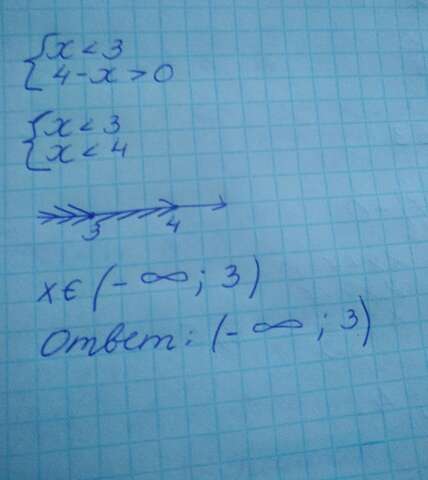 {x < 3
{4 - x > 0
{x < 3
{x < 4
3 4
x ∈ (-∞; 3)
Ответ: (-∞; 3)